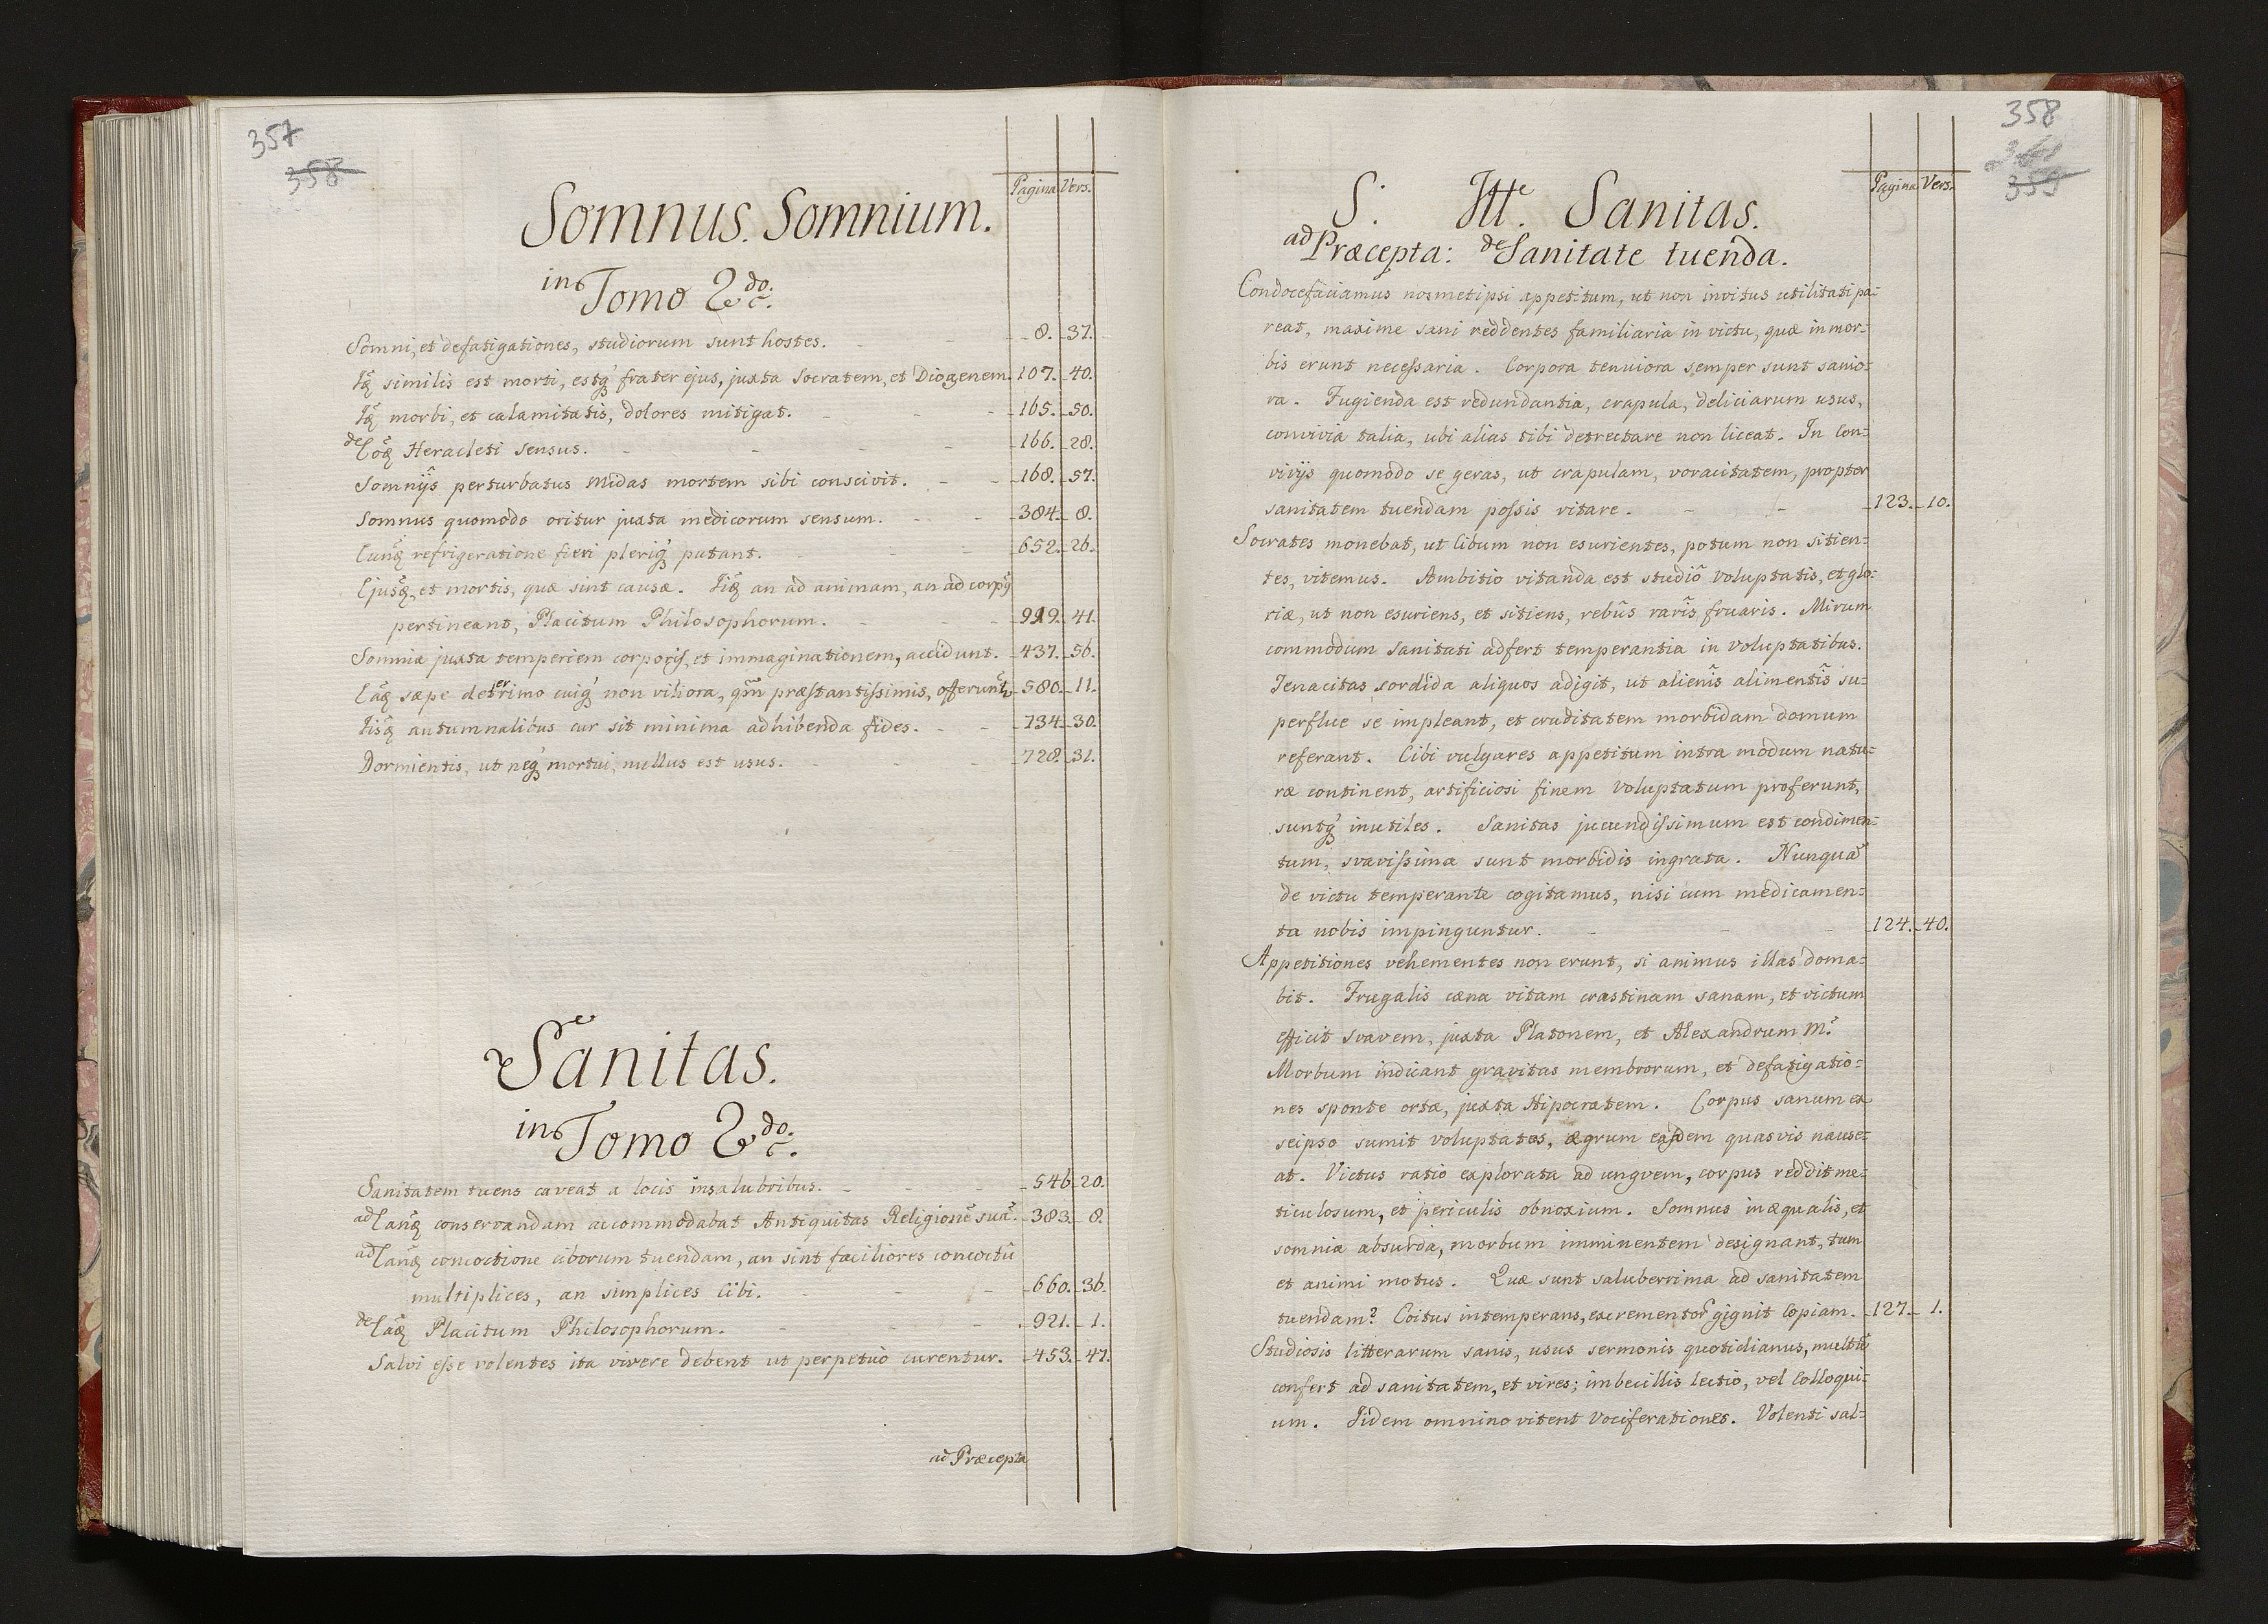 357
358
Pagina Vers.
Somnus. Somnium.
in Tomo 2do.
Somni, et defatigationes, studiorum sunt hostes. 8. 37.
similis est morti, estq́ frater ejus, juxta Socratem, et Diogenem. 107. 40.
morbi, et calamitatis, dolores mitigat. 165. 50.
de Heracleti sensus. 166. 28.
Somnijs perturbatus Midas mortem sibi conscivit. 168. 57.
Somnus quomodo oritur juxta medicorum sensum. 384. 8.
refrigeratione fieri pleriq́ putant. 652. 26.
et mortis, quæ sint causæ. an ad animam, an ad corpq
pertineant, Placitum Philosophorum. 919. 41.
Somnia juxta temperiem corporis, et immaginationem, accidunt. 437. 56.
sæpe deterrimo cuiq́ non viliora, qm̃ præstantissimis, offerunt 580. 11.
autumnalibus cur sit minima adhibenda fides. 734. 30.
Dormientis, ut neq́ mortui, nullus est usus. 728. 31.
de Sanitas.
in Tomo 2do.
Sanitatem tuens caveat a locis insalubribus. 546. 20.
ad conservandam accommodabat Antiquitas Religionẽ suã. 383. 8.
ad concoctione ciborum tuendam, an sint faciliores concoctû
multiplices, an simplices Cibi. 660. 36.
de Placitum Philosophorum. 921. 1.
Salvi esse volentes ita vivere debent ut perpetuo curentur. 453. 47.
ad Præcepta
358
359
Pagina Vers.
S. Sanitas.
ad Præcepta: de Sanitate tuenda.
Condocefaciamus nosmetipsi appetitum, ut non invitus utilitati pa=
reat, maxime sani reddentes familiaria in victu, quæ in mor=
bis erunt necessaria. Corpora tenuiora semper sunt sanio=
ra. Fugienda est redundantia, crapula, deliciarum usus,
convivia talia, ubi alias tibi detrectare non liceat. In Con=
vivijs quomodo se geras, ut crapulam, voracitatem, propter
sanitatem tuendam possis vitare. 123. 10.
Socrates monebat, ut Cibum non esurientes, potum non sitien=
tes, vitemus. Ambitio vitanda est studiô voluptatis, et glo=
riæ, ut non esuriens, et sitiens, rebûs rarîs fruaris. Mirum
commodum Sanitati adfert temperantia in voluptatibus.
Tenacitas sordida aliquos adigit, ut alienîs alimentîs su=
perflue se impleant, et cruditatem morbidam domum
referant. Cibi vulgares appetitum intra modum natu=
ræ continent, artificiosi finem voluptatum proferunt,
suntq́ inutiles. Sanitas jucundissimum est condimen=
tum, svavissima sunt morbidis ingrata. Nunquã
de victu temperante cogitamus, nisi cum medicamen=
ta nobis impinguntur. 124. 40.
Appetitiones vehementes non erunt, si animus illas doma=
bit. Frugalis cæna vitam crastinam sanam, et victum
efficit svavem, juxta Platonem, et Alexandrum M.
Morbum indicant gravitas membrorum, et defatigatio=
nes sponte ortæ, juxta Hipocratem. Corpus sanum ex
seipso sumit voluptates, ægrum easdem quasvis nause=
at. Victus ratio explorata ad ungvem, corpus reddit me=
ticulosum, et periculis obnoxium. Somnus inæqualis, et
somnia absurda, morbum imminentem designant, tum
et animi motus. Quæ sunt saluberrima ad sanitatem
tuendam? Coitus intemperans, excrementor̃ gignit Copiam. 127. 1.
Studiosis litterarum sanis, usus sermonis quotidianus, multũ
confert ad sanitatem, et vires; imbecillis lectio, vel Colloqui=
um. Iidem omnino vitent Vociferationes. Volenti sal=